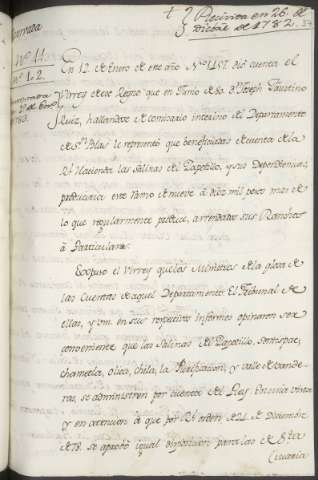 Recivida en 26. de
Dicbre. de 1782.
Nº. 11.
Nº. 1-2.
En 12. de Enero de este año Nº. 1157. dió cuenta el
Virrey de ese Reyno que en Junio de 80. Dn. Joseph Faustino
Ruiz, hallandose de comisario interino del Departamento
de Sn. Blas le representó que beneficiadas de cuenta de la
Rl. Hacienda las Salinas del Zapotillo, y sus Dependencias,
produciria este Ramo de nueve á diez mil pesos mas de
lo que regularmente produce, arrendados sus Ranchos
á Particulares.
Expuso el Virrey que los Ministros de la glosa de
las Cuentas de aquel Departamento el Tribunal de
ellas, y en sus respectivos informes opinaron ser
conveniente que las Salinas del Zapotillo, Sentispac,
chametla, olita, chila, la Purificacion, y valle de vande-
ras, se administren por cuenta del Rey
y en atencion á que por Rl. orden de 21. de Diciembre
de 78. se aprobó igual disposicion para las de Sta.